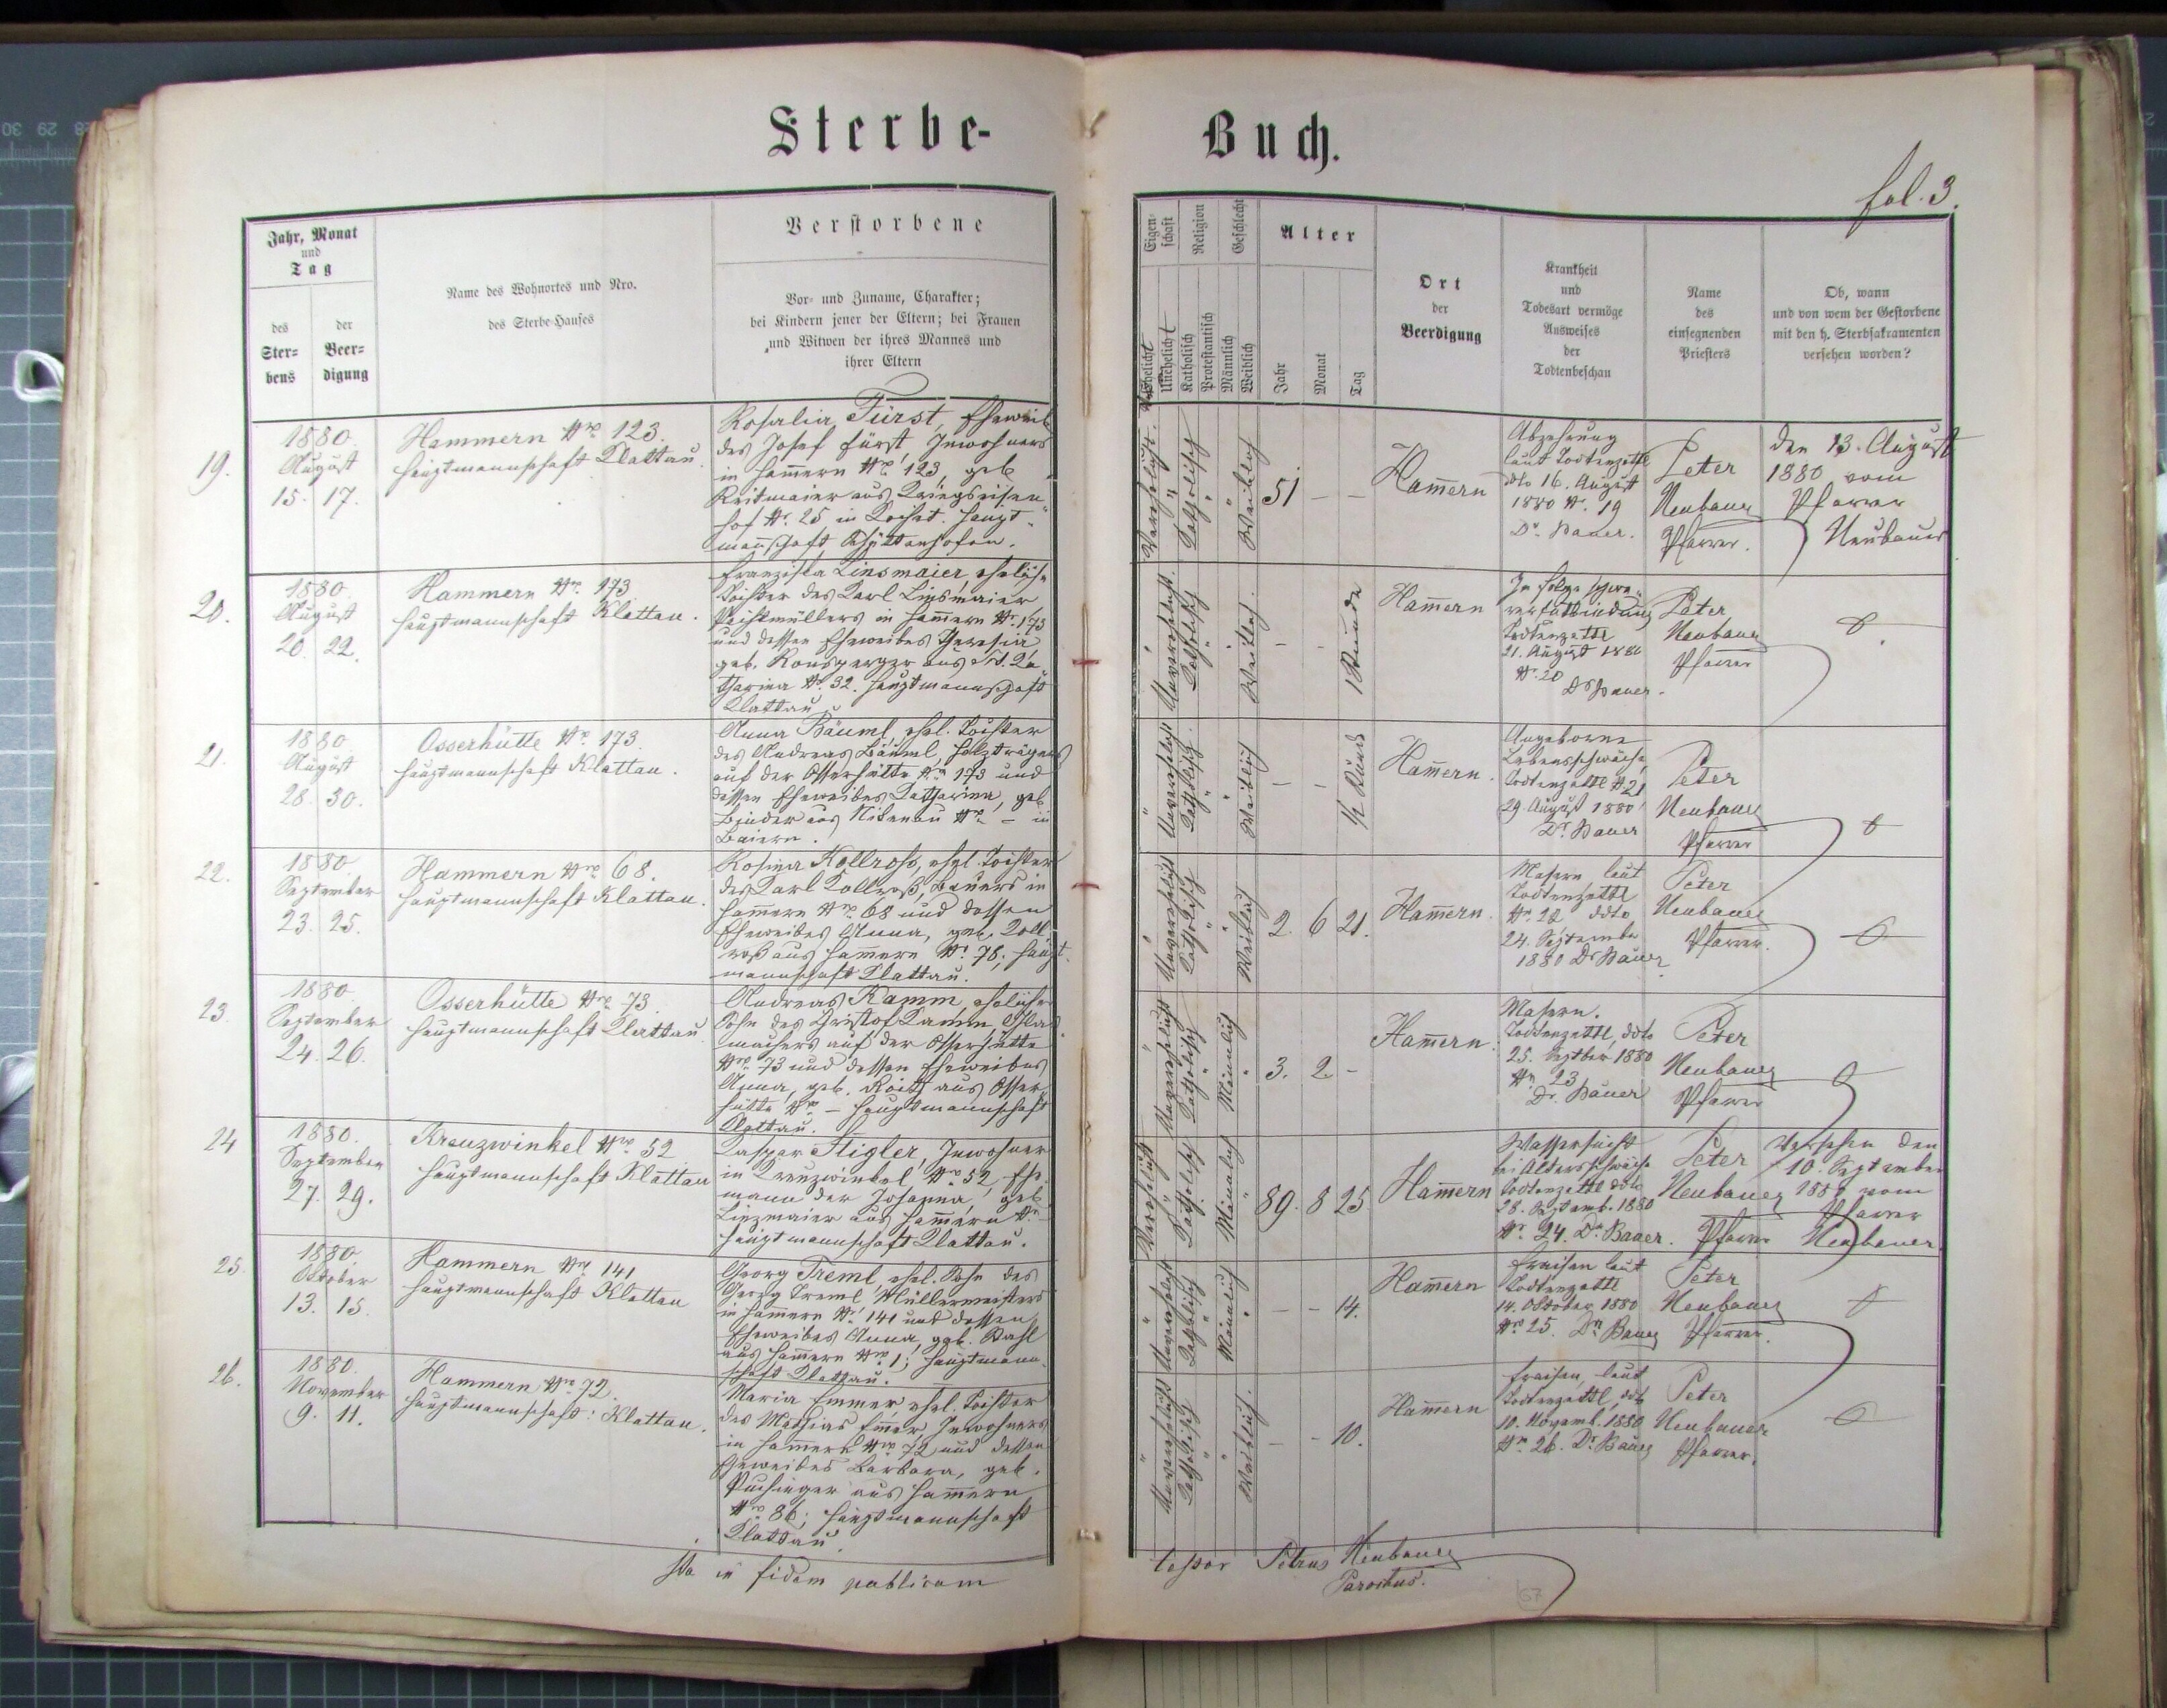 Sterbe-
Buch.
fol. 3.
Jahr, Monat
und
Tag
des
Ster=
bens
der
Beer=
digung
Name des Wohnortes und Nro.
des Sterbe-Hauses
Verstorbene
Vor- und Zuname, Charakter;
bei Kindern jener der Eltern; bei Frauen
und Witwen der ihres Mannes und
ihrer Eltern
Eigen-
schaft
Religion
Geschlecht
Alter
Verehelicht
Unehelicht
Katholisch
Protestantisch
Männlich
Weiblich
Jahr
Monat
Tag
Ort
der
Beerdigung
Krankheit
und
Todesart vermöge
Ausweises
der
Todtenbeschau
Name
des
einsegnenden
Priesters
Ob, wann
und von wem der Gestorbene
mit den h. Sterbsakramenten
versehen worden?
19.
1880.
August
15. 17.
Hammern Nro 123.
Hauptmannschaft Klattau.
Rosalia Fürst, Eheweib
des Josef Fürst, Inwohners
in Hamern Nro 123, geb.
hof Nr. 25 in
mannschaft Schüttenhofen.
Verehelicht.
Katholisch
Weiblich
51 — —
Hamern
Abzehrung
laut Todtenzettl
ddo 16. August
1880 Nr. 19
Dr. Bauer.
Peter
Neubauer
Pfarrer.
den 13. August
1880 vom
Pfarrer
Neubauer
20.
1880.
August
20. 22.
Hammern Nro. 173
Hauptmannschaft Klattau.
Franziska Linsmaier, eheliche
Tochter des Karl Linsmaier
in Hamern Nr. 173
und dessen Eheweibes Theresia
geb. Konsperger aus St. Ka
tharina Nr. 32. Hauptmannschaft
Klattau
Unverehelicht.
Katholisch
Weiblich.
- - 1 Stunde
Hamern
In Folge schwe-
rer Entbindung
Todtenzettl
21. August 1880
Nr. 20
Dr Bauer.
Peter
Neubauer
Pfarrer
21.
1880
August
28. 30.
Osserhütte Nr. 173.
Hauptmannschaft Klattau.
Anna Bäuml, ehel. Tochter
des Andreas Bäuml, Holzträgers
auf der Osserhütte Nro 173 und
dessen Eheweibes Katharina, geb.
Binder aus Nro — in
Baiern.
Unverehelicht
Katholisch.
Weiblich
— - ½ Stund
Hamern.
Angeborne
Lebensschwäche,
Todtenzettl Nr 21
29. August 1880
Dr. Bauer
Peter
Neubauer
Pfarrer
22.
1880.
September
23. 25.
Hammern Nro 68.
Hauptmannschaft Klattau.
Rosina Kollross, ehel. Tochter
des Karl Kollroß, Bauers in
Hamern Nro. 68 und dessen
Eheweibes Anna, geb. Koll
roß aus Hamern Nr. 78, Haupt-
mannschaft Klattau.
Unverehelicht
Katholisch
Weiblich
2. 6 21.
Hamern.
Masern laut
Todtenzettl
Nr. 22 ddto
24. September
1880 Dr Bauer
Peter
Neubauer
Pfarrer.
23.
1880
September
24. 26.
Osserhütte Nro 73
Hauptmannschaft Klattau
Andreas Kamm, ehelicher
Sohn des Christof Kamm, Glas
machers auf der Osserhütte
Nro. 73 und dessen Eheweibes
Anna, geb. aus Osser
hütte Nro — Hauptmannschaft
Klattau.
Unverehelicht
Katholisch
Männlich
3. 2. -
Hamern.
Masern.
Todtenzettl, ddto
25. Septber 1880
Nr. 23
Dr. Bauer
Peter
Neubauer
Pfarrer
24
1880.
September
27. 29.
Kreuzwinkel Nro. 52
Hauptmannschaft Klattau
Kaspar Stigler, Inwohner
in Kreuzwinkel Nro 52, Ehe-
mann der Johanna, geb.
Linzmaier aus Hamern Nr.
Hauptmannschaft Klattau.
Verehelicht
Katholisch
Männlich
89. 8 25
Hamern
Wassersucht
bei Altersschwäche
Todtenzettl ddto
28. Septemb. 1880
Nr. 24. Dr. Bauer.
Peter
Neubauer
Pfarrer
Versehen den
10. September
1880 vom
Pfarrer
Neubauer
25.
1880.
Oktober
13. 15.
Hammern Nro 141
Hauptmannschaft Klattau
Georg Treml, ehel. Sohn des
Georg Treml, Müllermeisters
in Hamern Nr. 141 und dessen
Eheweibes Anna, geb.
aus Hamern Nro 1; Hauptmann-
schaft Klattau.
Unverehelicht
Katholisch
Männlich
— - 14.
Hamern
Fraisen laut
Todtenzettl
14. Oktober 1880
Nro 25. Dr. Bauer
Peter
Neubauer
Pfarrer.
26.
1880.
November
9. 11.
Hammern Nro 72.
Hauptmannschaft: Klattau.
Maria Emmer, ehel. Tochter
des Mathias Emer, Inwohners
in Hamern Nro 72 und dessen
Eheweibes Barbara, geb.
aus Hamern
Nro 86; Hauptmannschaft
Klattau.
Unverehelicht
Katholisch
Weiblich.
— - 10.
Hamern
Fraisen, laut
Todtenzettl, ddto
10. Novemb. 1880
Nr. 26. Dr. Bauer
Peter
Neubauer
Pfarrer.
Ita in fidem publicam
testor Petrus Neubauer
Parochus.
67